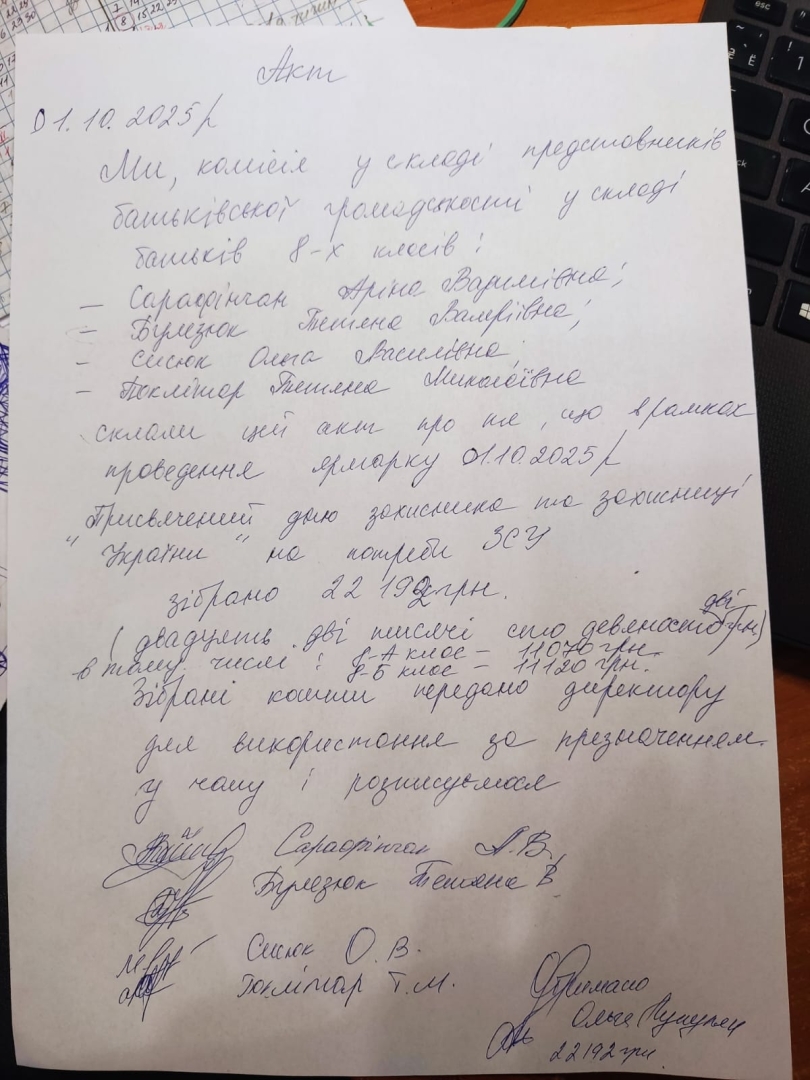 Акт
01.10.2025р
Ми, комісія у складі представників
батьківської громадськості у складі
батьків 8-х класів:
– Сарафінчан Аріна Вадимівна;
– Білезюк Тетяна Валеріївна;
– Сисюк Ольга Василівна;
– Поклітар Тетяна Миколаївна
склали цей акт про те, що в рамках
проведення ярмарку 01.10.2025р
"Присвячений дню захисника та захисниці
України" на потреби ЗСУ
зібрано 22 192 грн.
дві
(двадцять дві тисячі сто девяносто грн)
в тому числі: 8-А клас – 11070 грн.
8-Б клас – 11120 грн.
Зібрані кошти передано директору
для використання за презначенням.
у чому і розписуємося
Сарафінчан А.В.
Білезюк Тетяна В.
Сисюк О.В.
Поклітар Т.М.
Отримано
Ольга
22192 грн